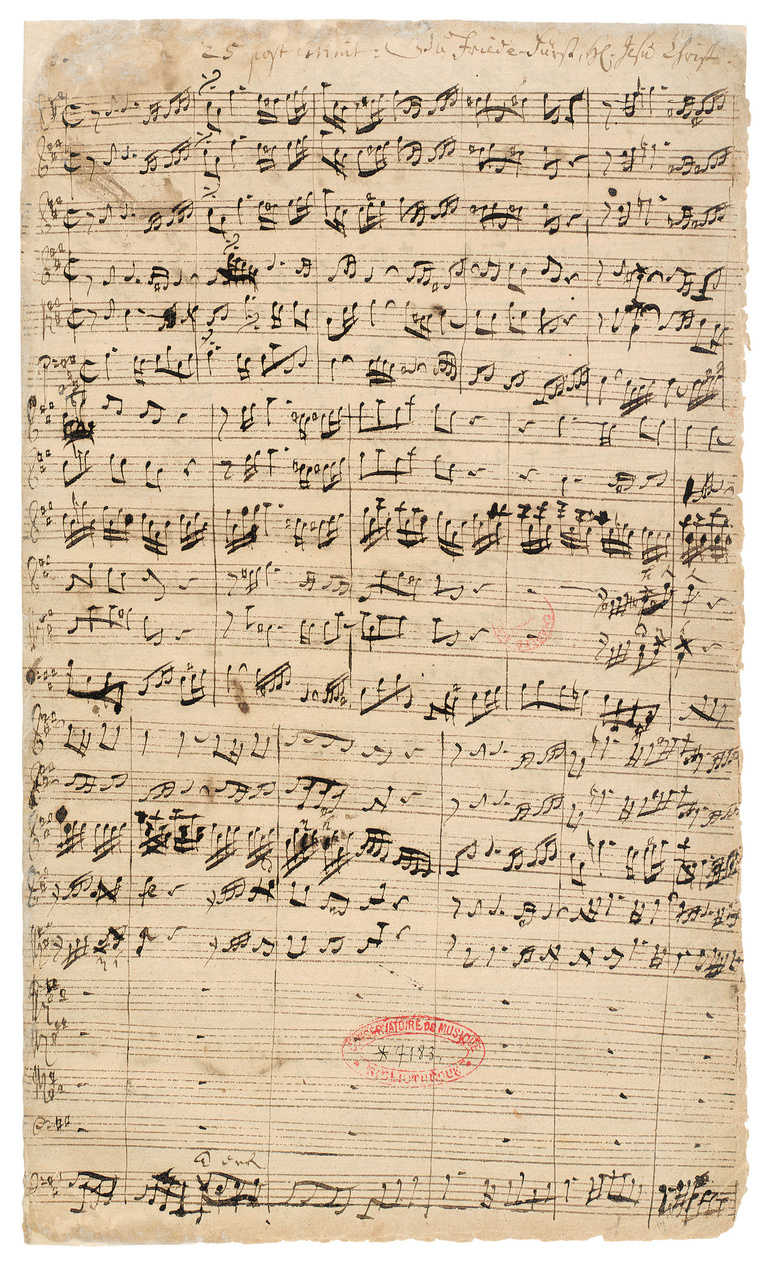 5 post Trinit: Du Friede-Fürst, H: Jesu Christ
CONSERVATOIRE DE MUSIQUE
4183
BIBLIOTHEQUE